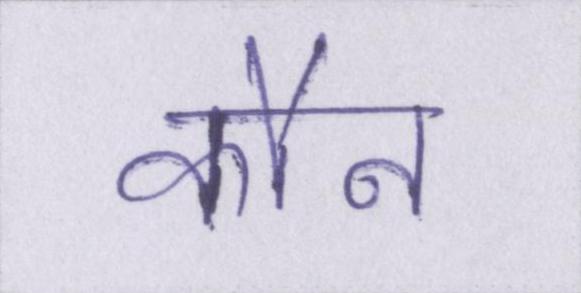 कौन